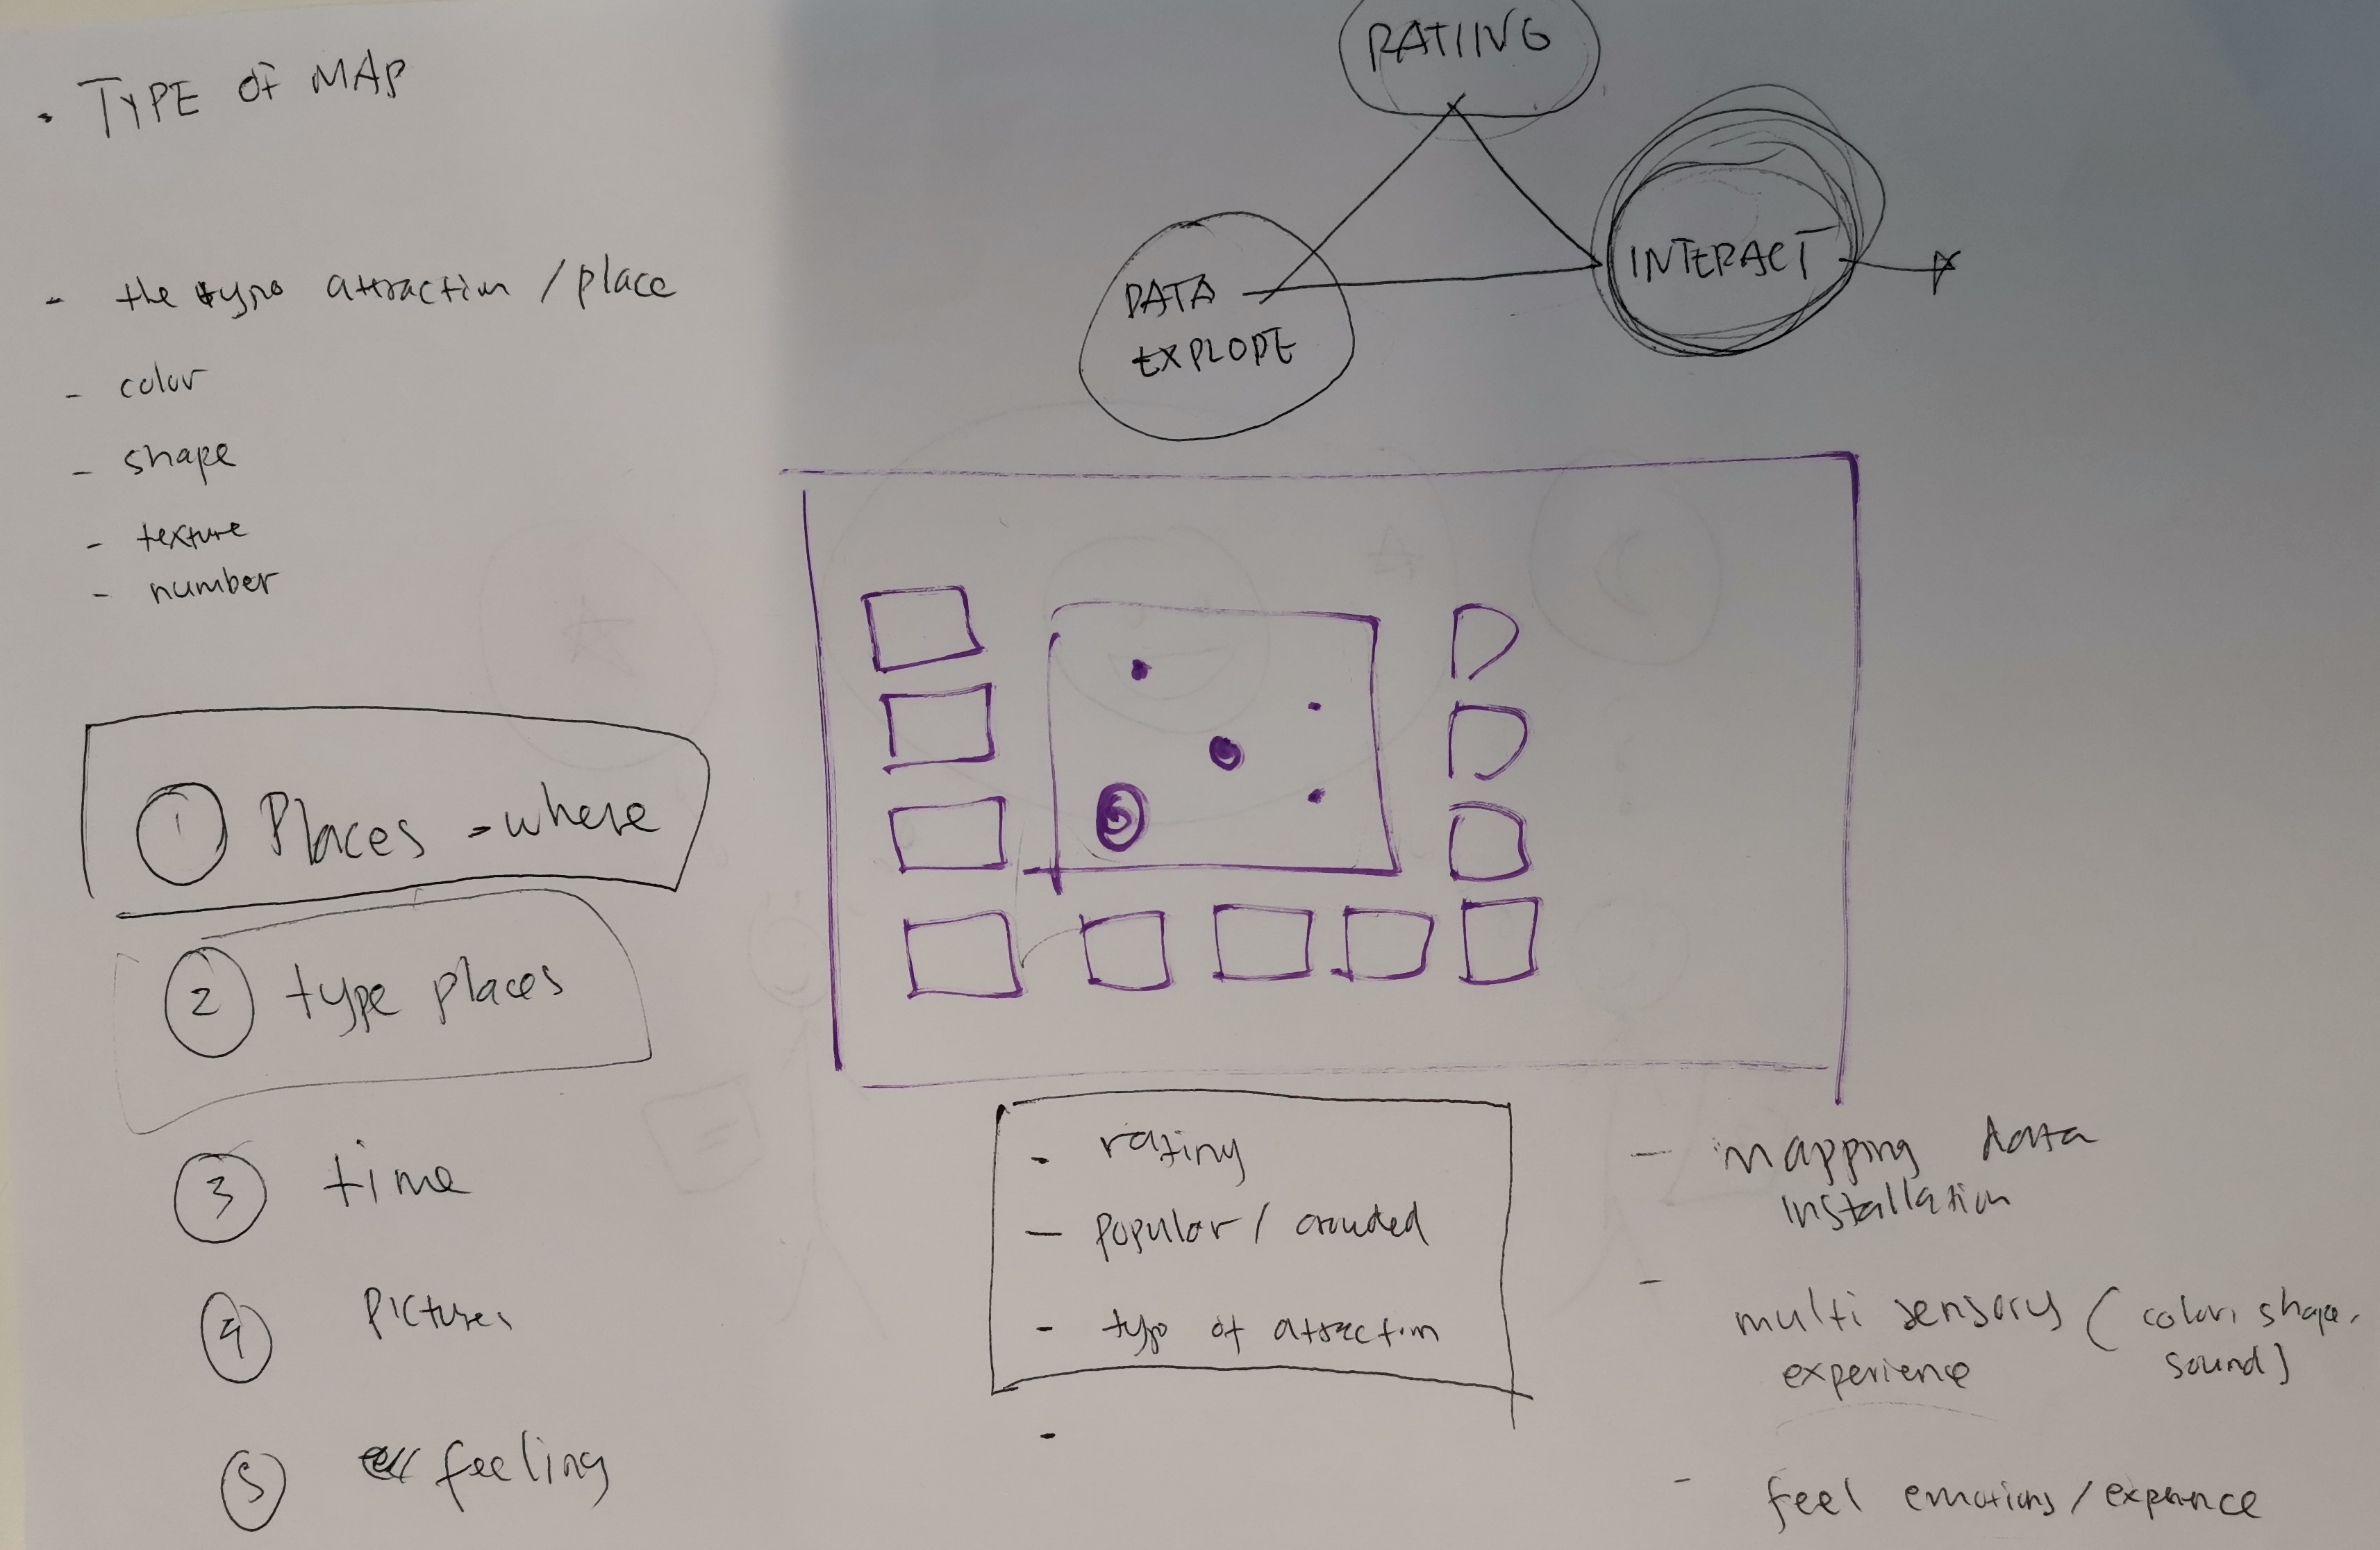 • TYPE OF MAP
- the type attraction / place
- color
- shape
- texture
- number
1 Places - where
2 type places
3 time
4 Pictures
5 feeling
RATIING
DATA
EXPLORE
INTERACT
- rating
- popular / crowded
- type of attraction
-
- mapping data
installation
- multi sensory ( color, shape,
experience sound )
- feel emotions / experience